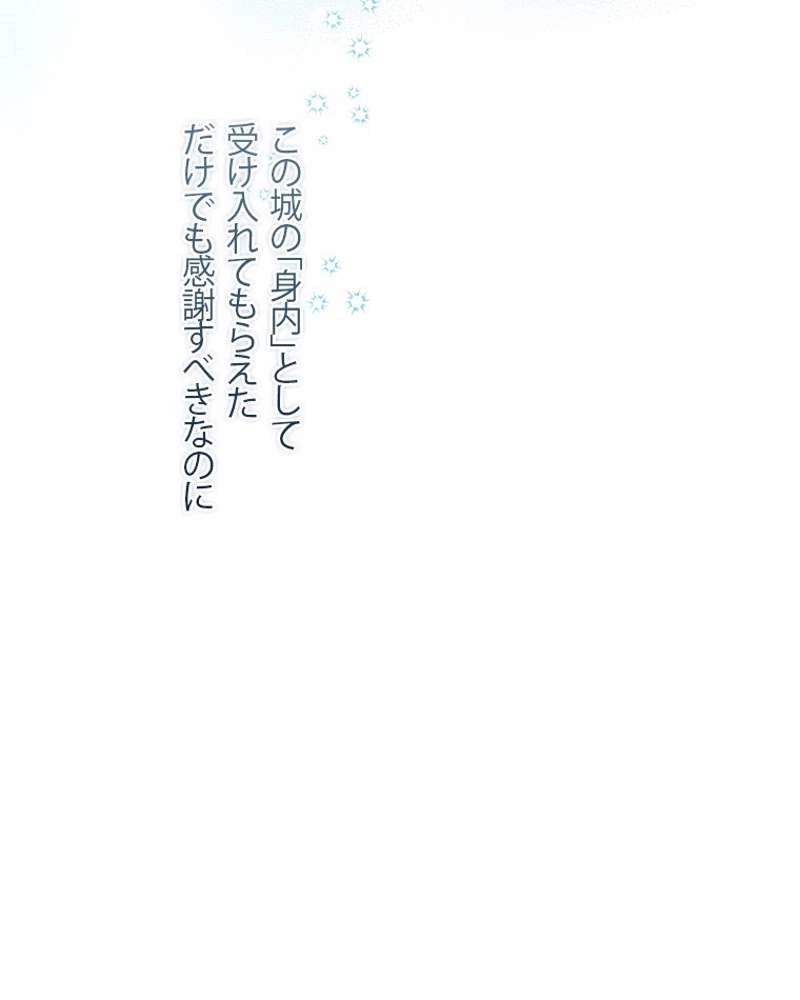 この城の「身内」として
受け入れてもらえた
だけでも感謝すべきなのに